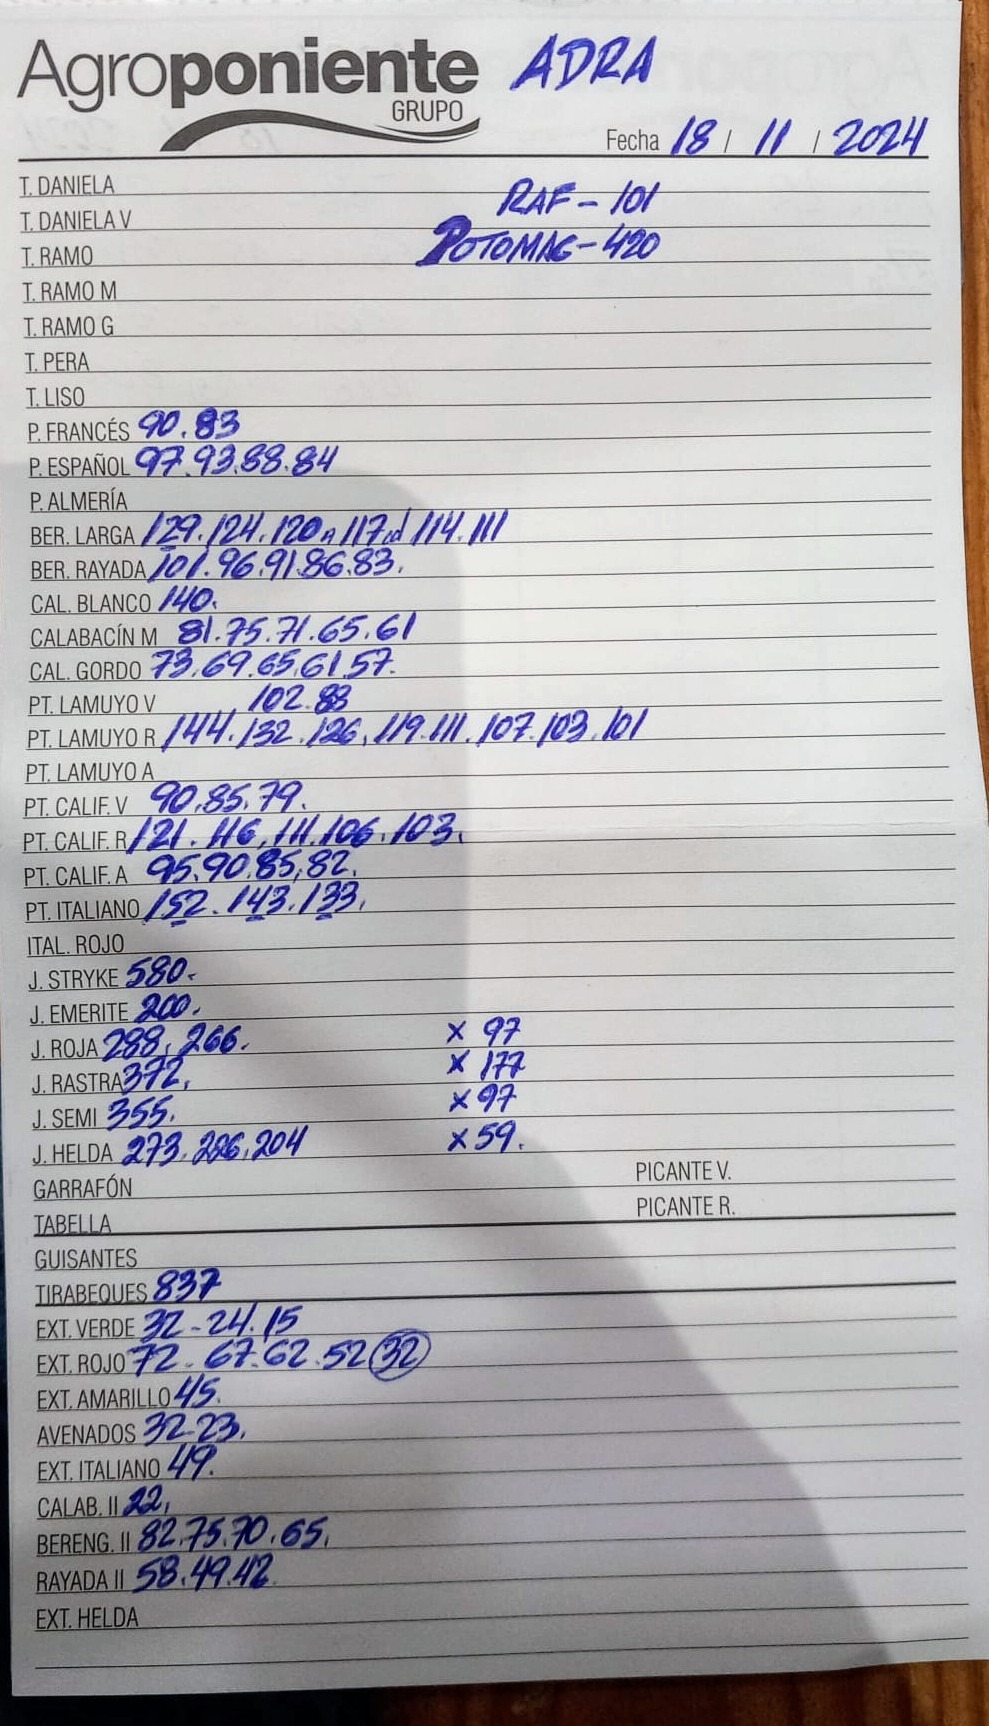 Agroponiente ADRA
GRUPO
Fecha 18 / 11 / 2024
T. DANIELA
RAF - 101
T. DANIELA V
T. RAMO POTOMAC - 420
T. RAMO M
T. RAMO G
T. PERA
T. LISO
P. FRANCÉS 90.83
P. ESPAÑOL 97.93.88.84
P. ALMERÍA
BER. LARGA 129.124.120 117 114.111
BER. RAYADA 101.96.91.86.83.
CAL. BLANCO 140.
CALABACÍN M 81.75.71.65.61
CAL. GORDO 73.69.65.61.57.
PT. LAMUYO V 102.88
PT. LAMUYO R 144.132.126.119.111.107.103.101
PT. LAMUYO A
PT. CALIF. V 90.85.79.
PT. CALIF. R 121.116.111.106.103.
PT. CALIF. A 95.90.85.82.
PT. ITALIANO 152.143.133.
ITAL. ROJO
J. STRYKE 580.
J. EMERITE 200.
J. ROJA 288, 266. x 97
J. RASTRA 372, x 177
J. SEMI 355. x 97
J. HELDA 273.226.204 x 59.
GARRAFÓN PICANTE V.
TABELLA PICANTE R.
GUISANTES
TIRABEQUES 837
EXT. VERDE 32-24.15
EXT. ROJO 72-67.62.52 32
EXT. AMARILLO 45.
AVENADOS 32-23.
EXT. ITALIANO 49.
CALAB. II 22,
BERENG. II 82.75.70.65.
RAYADA II 58.49.42
EXT. HELDA